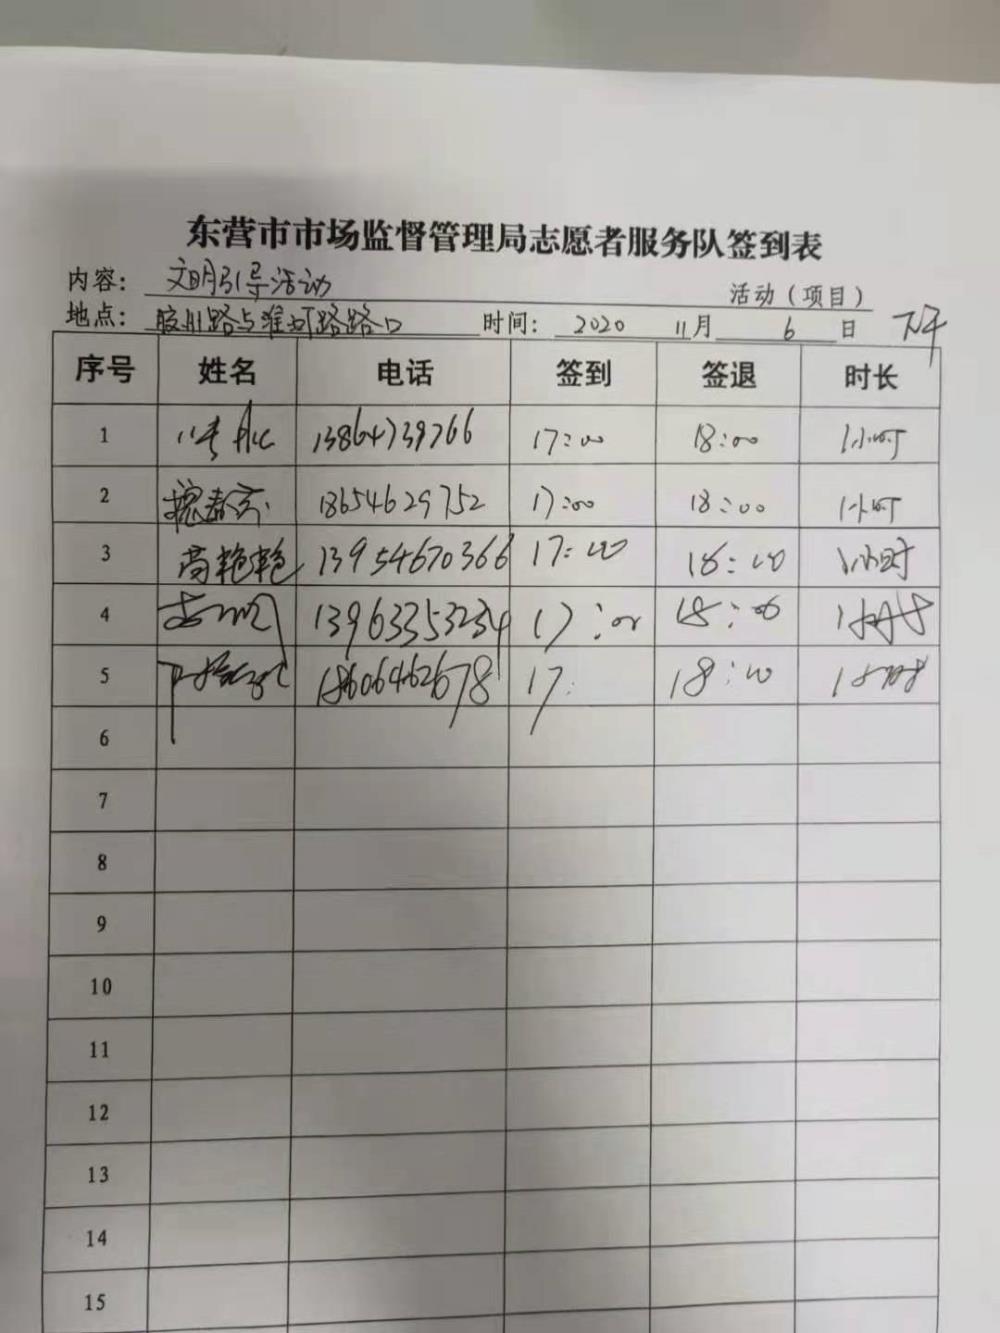 东营市市场监督管理局志愿者服务队签到表
内容： 文明引导活动 活动（项目）
地点： 胶州路与淮河路路口 时间： 2020 11月 6 日 下午
序号 姓名 电话 签到 签退 时长
1 13864739766 17:00 18:00 1小时
2 18654629752 17:00 18:00 1小时
3 高艳艳 13954670366 17:00 18:00 1小时
4 13963353234 17:00 18:00 1小时
5 18606462678 17: 18:00 1小时
6
7
8
9
10
11
12
13
14
15